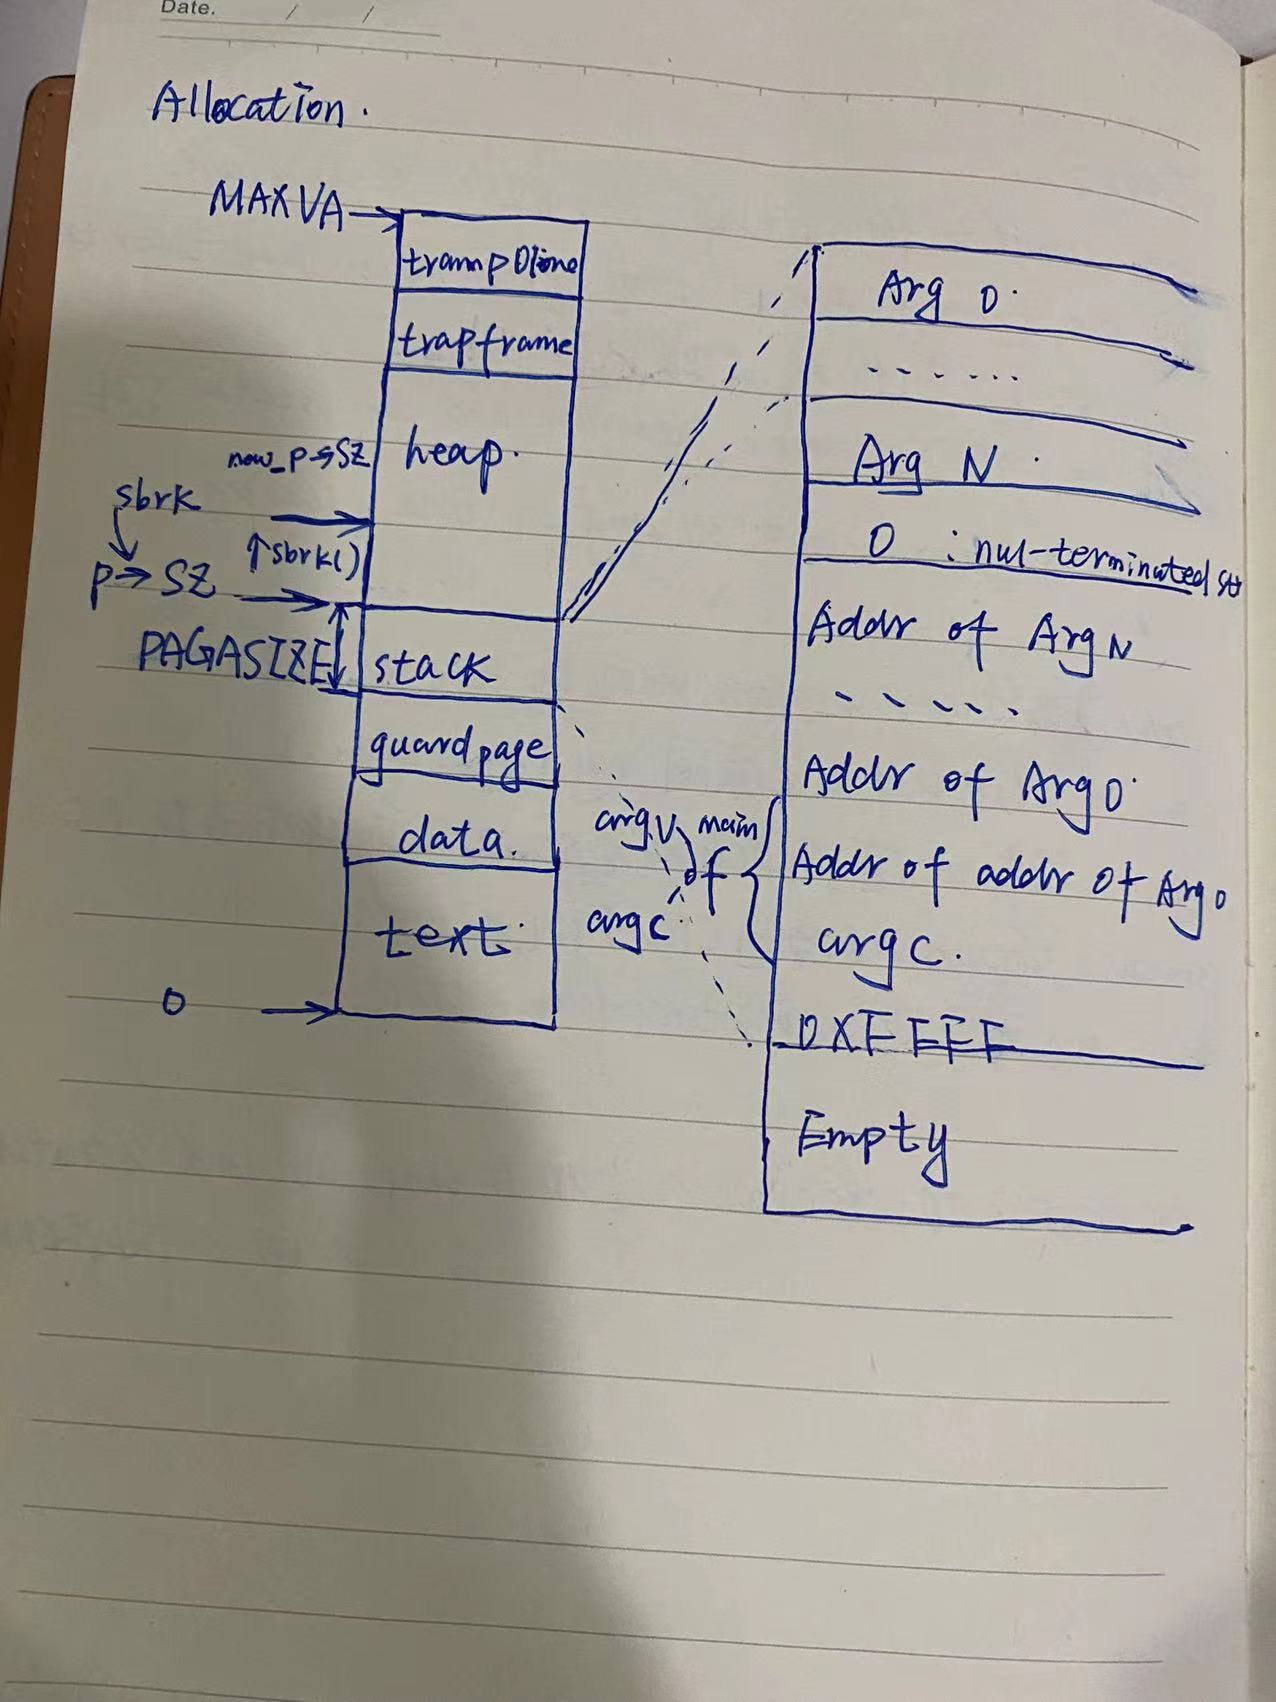 Date. / /
Allocation.
MAXVA
trampoline
trapframe
heap.
new_p→sz
sbrk
↑sbrk()
p→sz
PAGASIZE
stack
guard page
data.
text.
0
Arg 0.
......
Arg N.
0 : nul-terminated str
Addr of Arg N
.....
Addr of Arg 0.
argv
argc
of main
Addr of addr of Arg 0
argc.
0XFFFF
Empty